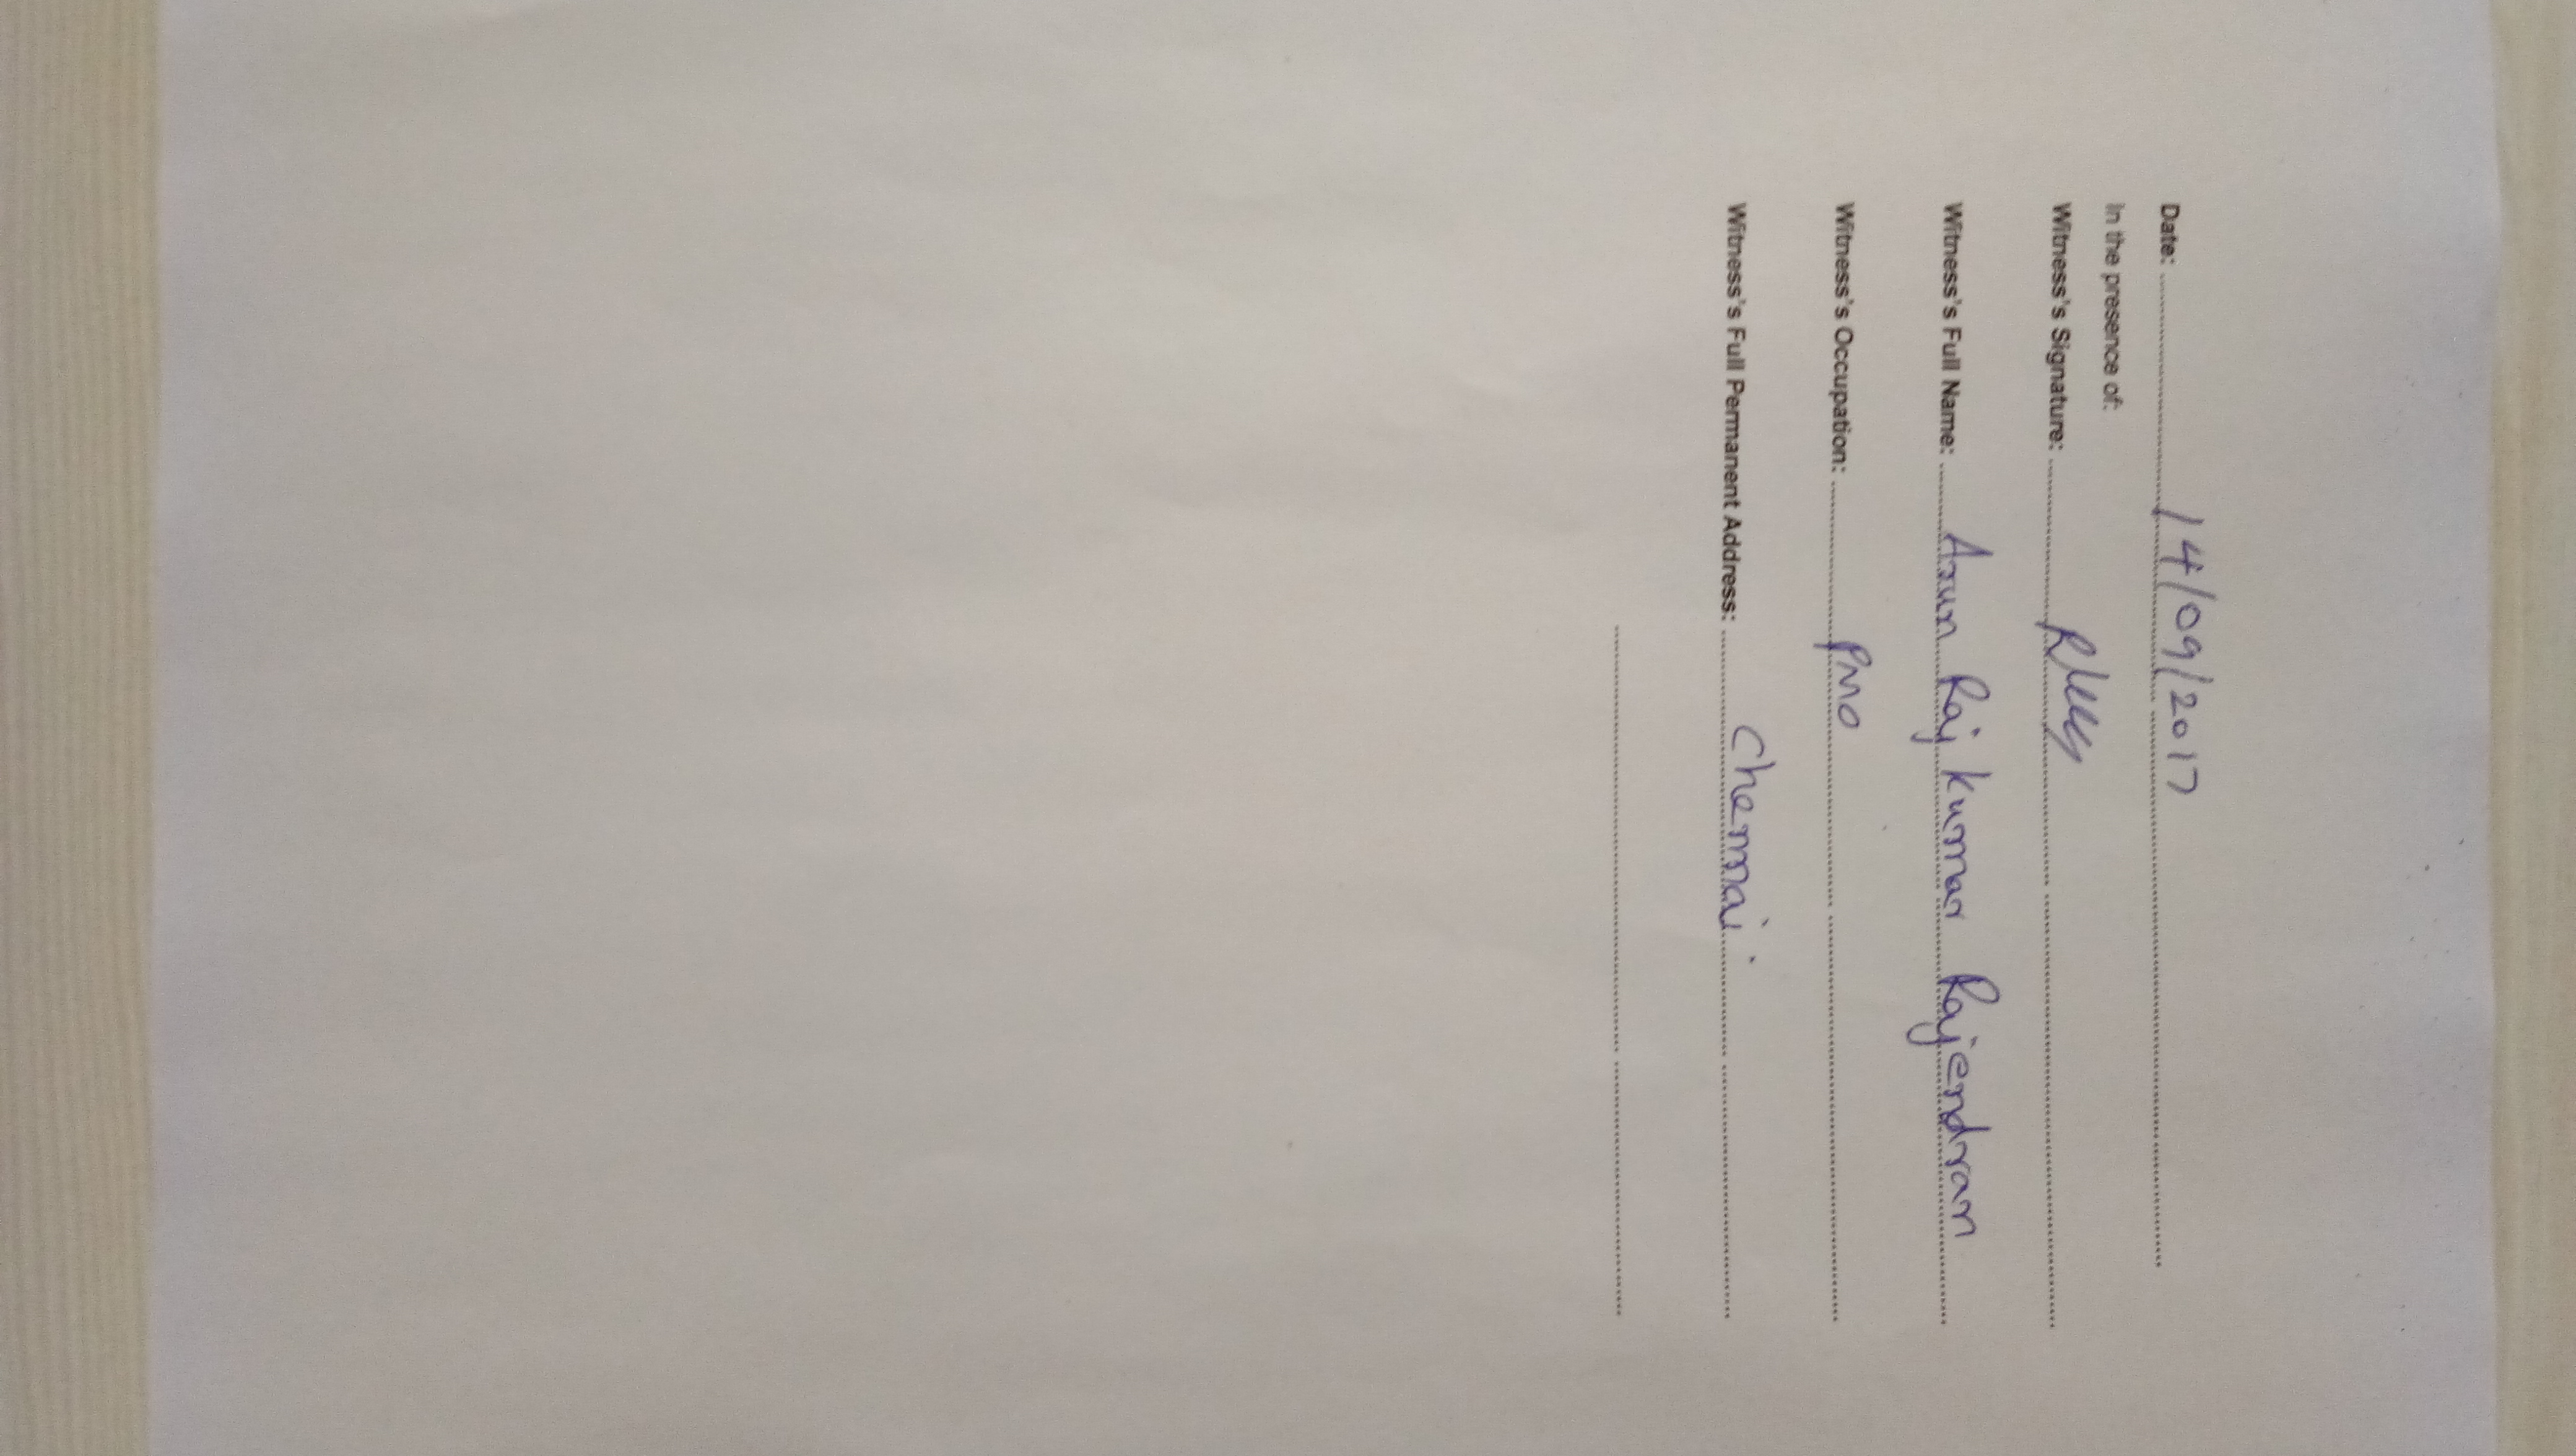 Date: 14/09/2017
In the presence of:
Witness's Signature:
Witness's Full Name: Arun Raj kumar Rajendran
Witness's Occupation: PMO
Witness's Full Permanent Address: Chennai.